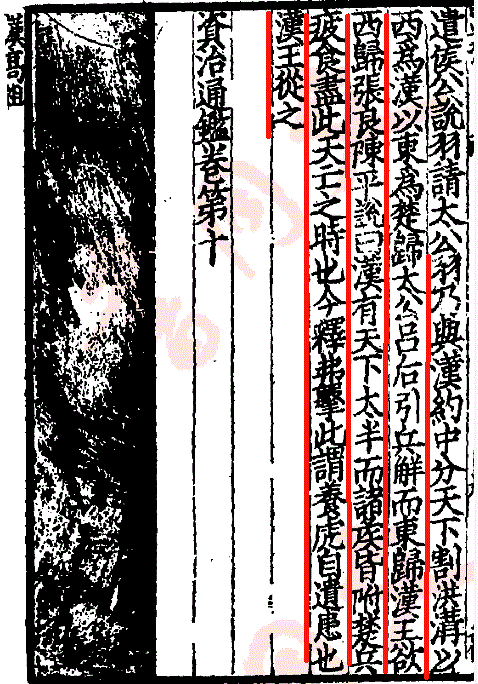 遺侯公說羽請太公羽乃與漢約中分天下割洪溝以
西爲漢以東爲楚歸太公呂后引兵解而東歸漢王欲
西歸張良陳平說曰漢有天下太半而諸侯皆附楚兵
疲食盡此天亡之時也今釋弗擊此謂養虎自遺患也
漢王從之
資治通鑑卷第十
漢高祖